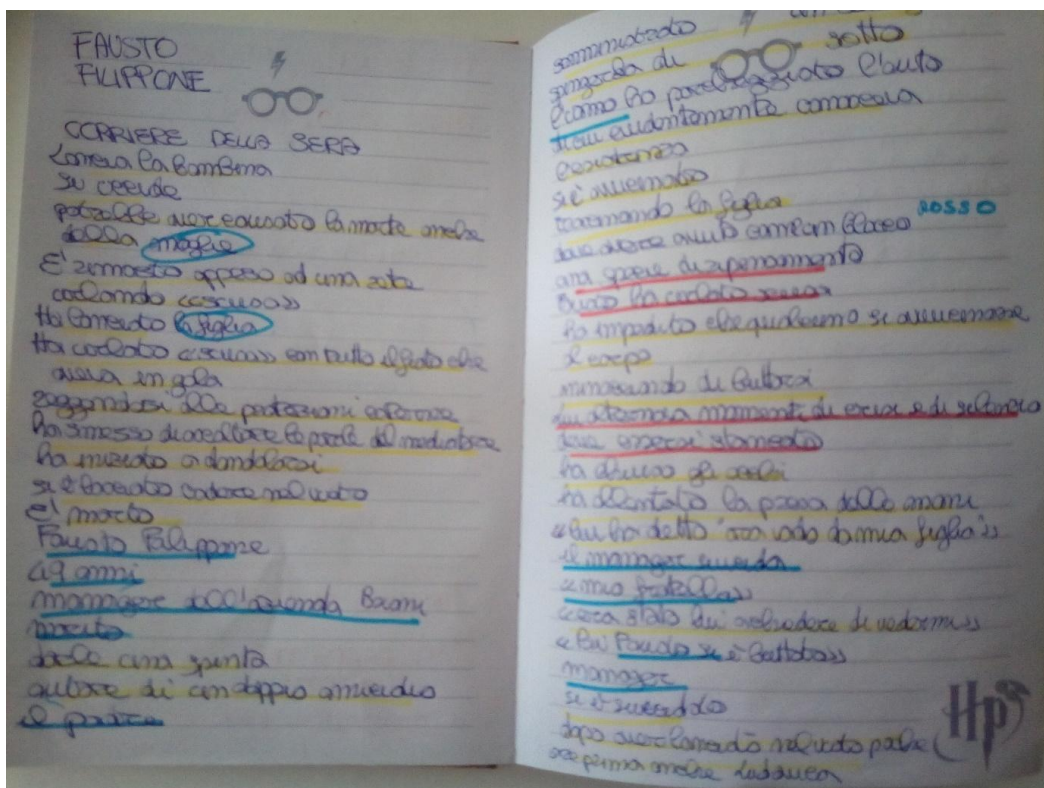 FAUSTO
FILIPPONE
CORRIERE DELLA SERA
Lancia la bambina
si uccide
potrebbe aver causato la morte anche
della moglie
E' rimasto appeso ad una rete
urlando «scusa»
Ha lanciato la figlia
Ha urlato «scusa» con tutto il fiato che
aveva in gola
reggendosi alle protezioni esterne
ha smesso di ascoltare le parole del mediatore
ha iniziato a dondolarsi
si è lasciato cadere nel vuoto
E' morto
Fausto Filippone
49 anni
manager dell'azienda Brioni
marito
darle una spinta
autore di un doppio omicidio
il padre
somministrato
sotto
l'uomo ho parcheggiato l'auto
evidentemente
l'esistenza
si è avvicinato
tranando la figlia
deve avere avuto
ROSSO
una specie di ripensamento
ha urlato scusa
ha impedito che qualcuno si avvicinasse
al corpo
minacciando di buttarsi
momenti di e di silenzio
deve essersi stancato
ha chiuso gli occhi
ha allentato la presa delle mani
«lui ha detto 'ora vado da mia figlia'»
il manager suicida
«mio fratello»
«era stato lui a chiedere di vedermi»
«lui Fausto si è buttato»
manager
si è suicidato
dopo aver lanciato nel vuoto
prima anche
Hp